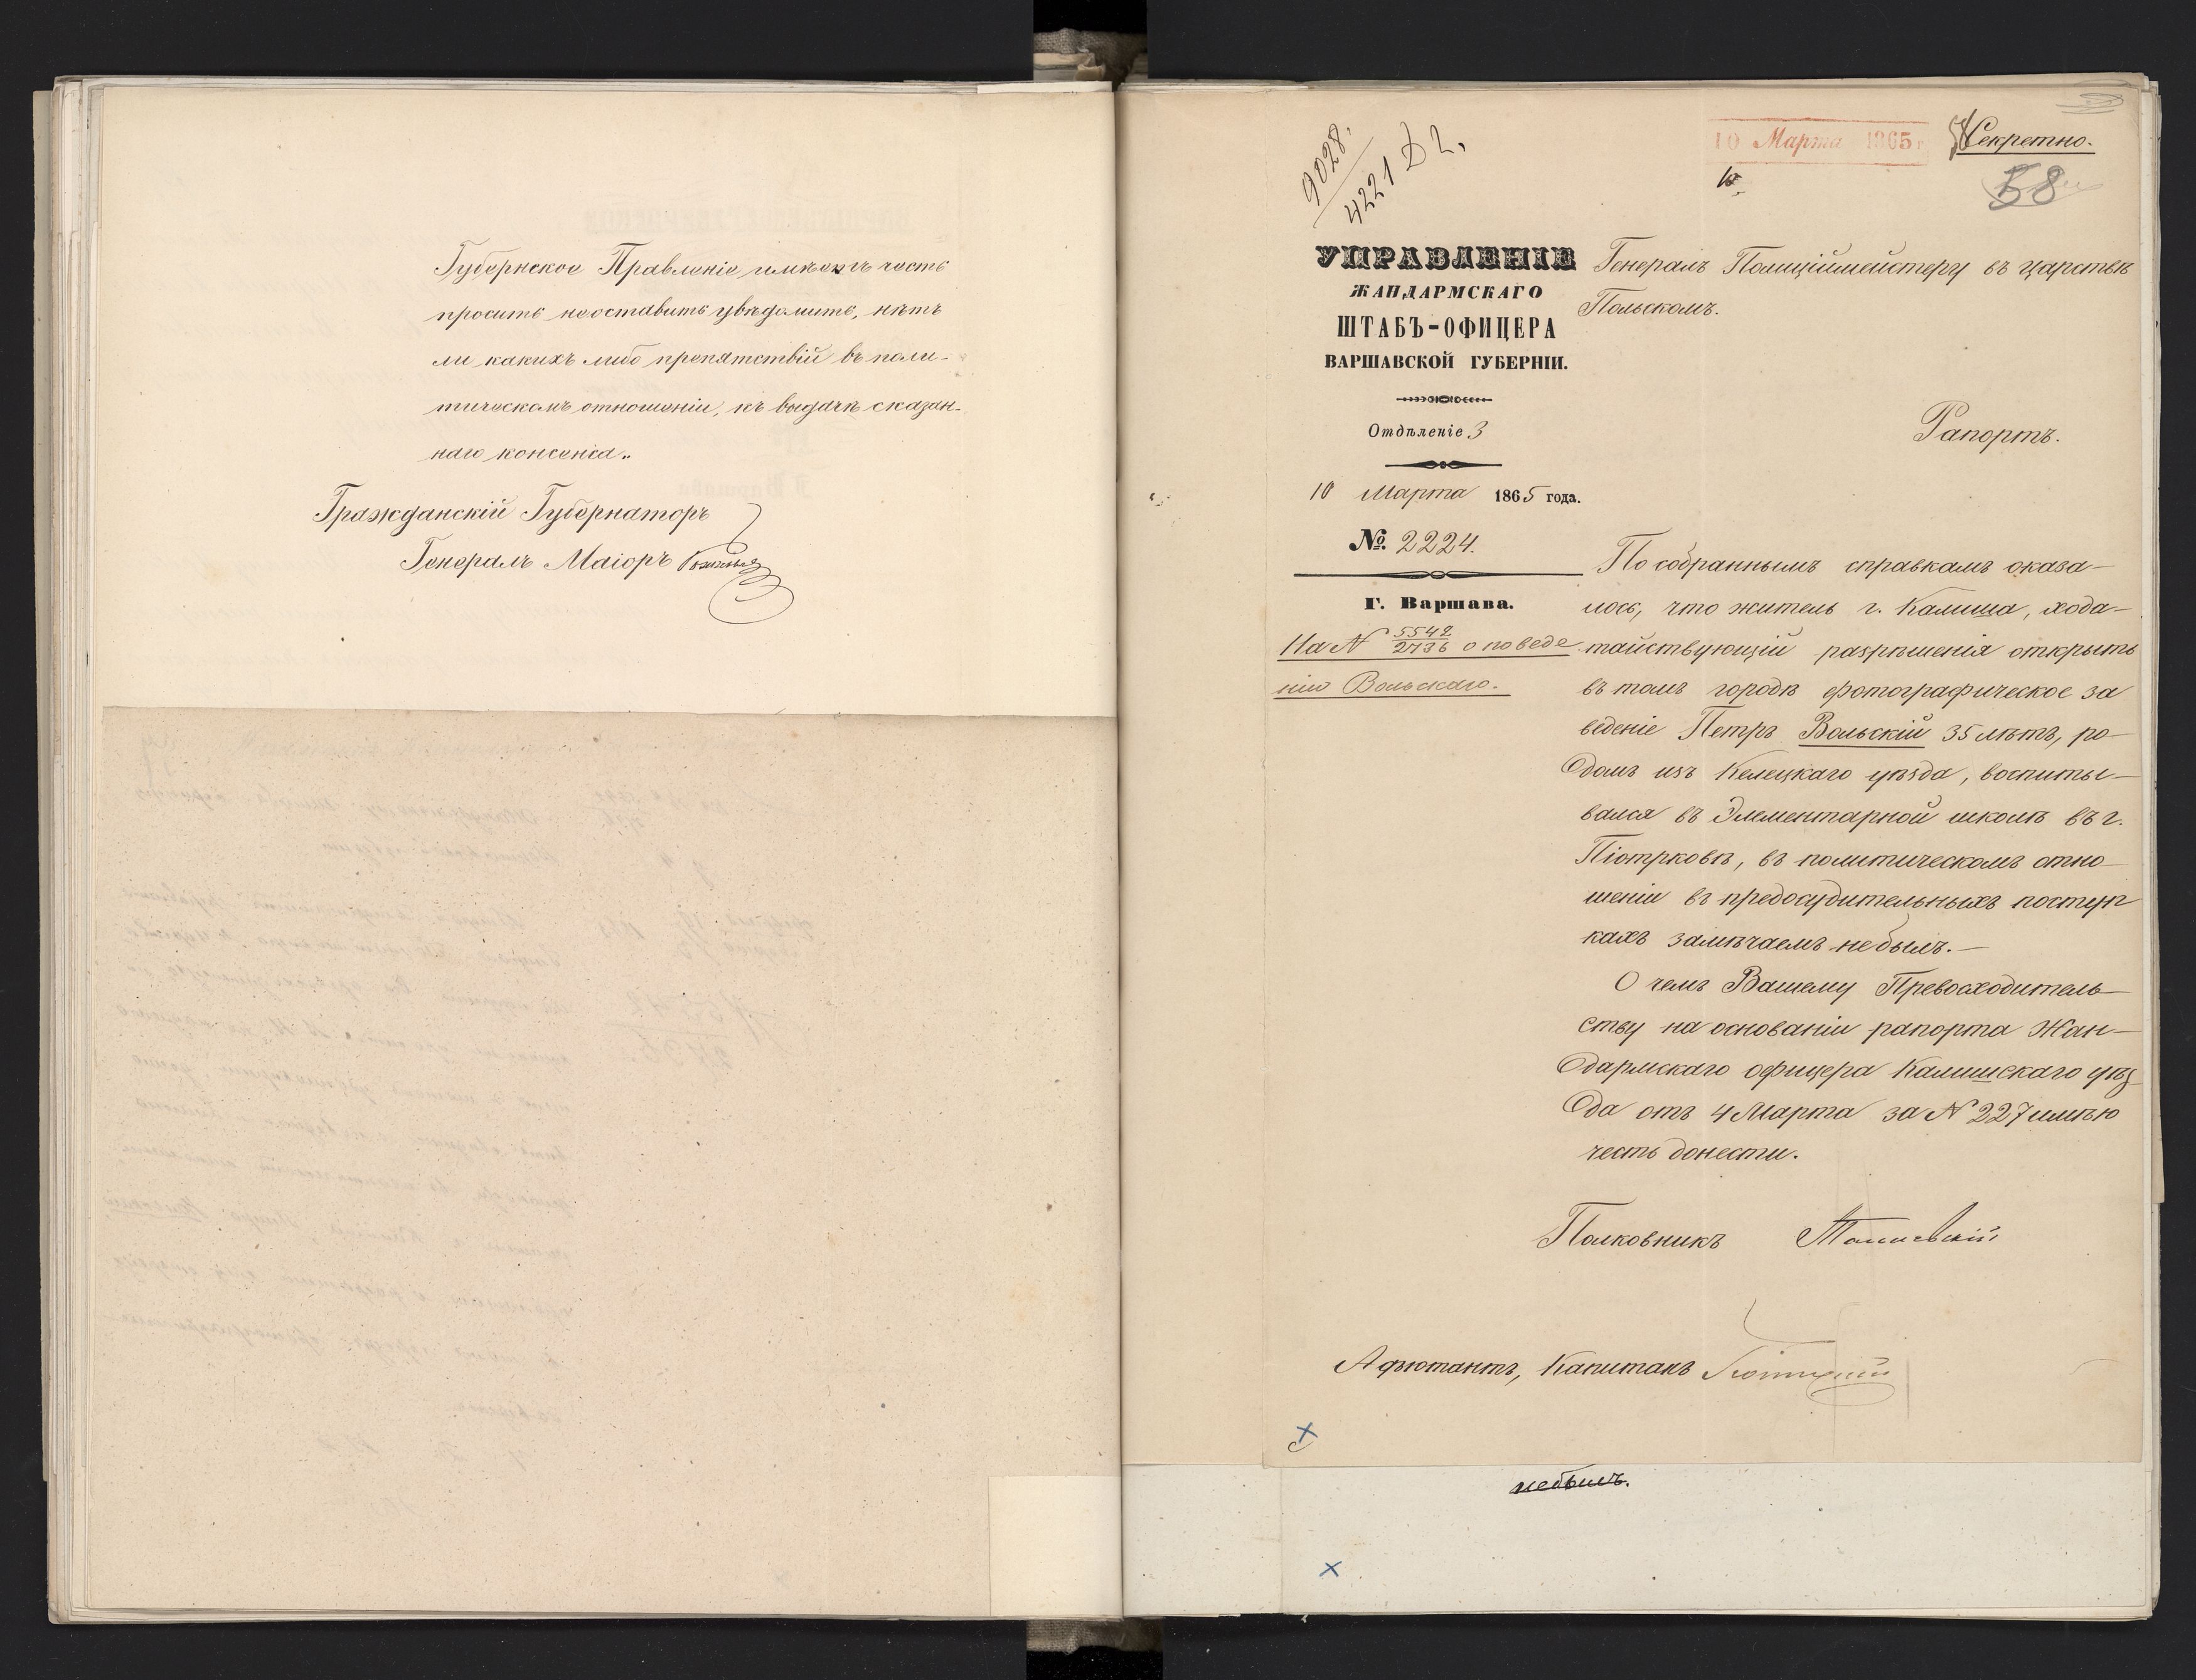 Губернское Правленіе имѣетъ честь
просить неоставить увѣдомить, нѣтъ
ли какихъ либо препятствій въ поли-
тическомъ отношеніи, къ выдачѣ сказан-
наго консенса.
Гражданскій Губернаторъ
Генералъ Маіоръ
9028.
4221 Д 2.
10 Марта 1865 г
Секретно.
58
УПРАВЛЕНІЕ
ЖАНДАРМСКАГО
ШТАБЪ-ОФИЦЕРА
ВАРШАВСКОЙ ГУБЕРНІИ.
Отдѣленіе 3
10 Марта 1865 года.
№ 2224.
Г. Варшава.
На № 5542/2736 о поведе
ніи Вольскаго.
Генералъ Полиціймейстеру въ царствѣ
Польскомъ.
Рапортъ.
По собраннымъ справкамъ оказа-
лось, что житель г. Калиша, хода-
тайствующій разрѣшенія открыть
въ томъ городѣ фотографическое за
веденіе Петръ Вольскій 35 лѣтъ, ро-
домъ изъ Келецкаго уѣзда, воспиты-
вался въ Элементарной школѣ въ г.
Піотрковѣ, въ политическомъ отно
шеніи въ предосудительныхъ поступ
кахъ замѣчаемъ небылъ.-
О чемъ Вашему Превосходитель-
ству на основаніи рапорта Жан-
дармскаго офицера Калишскаго уѣз
да отъ 4 Марта за № 227 имѣю
честь донести.
Полковникъ
Адъютантъ, Капитанъ
небылъ.